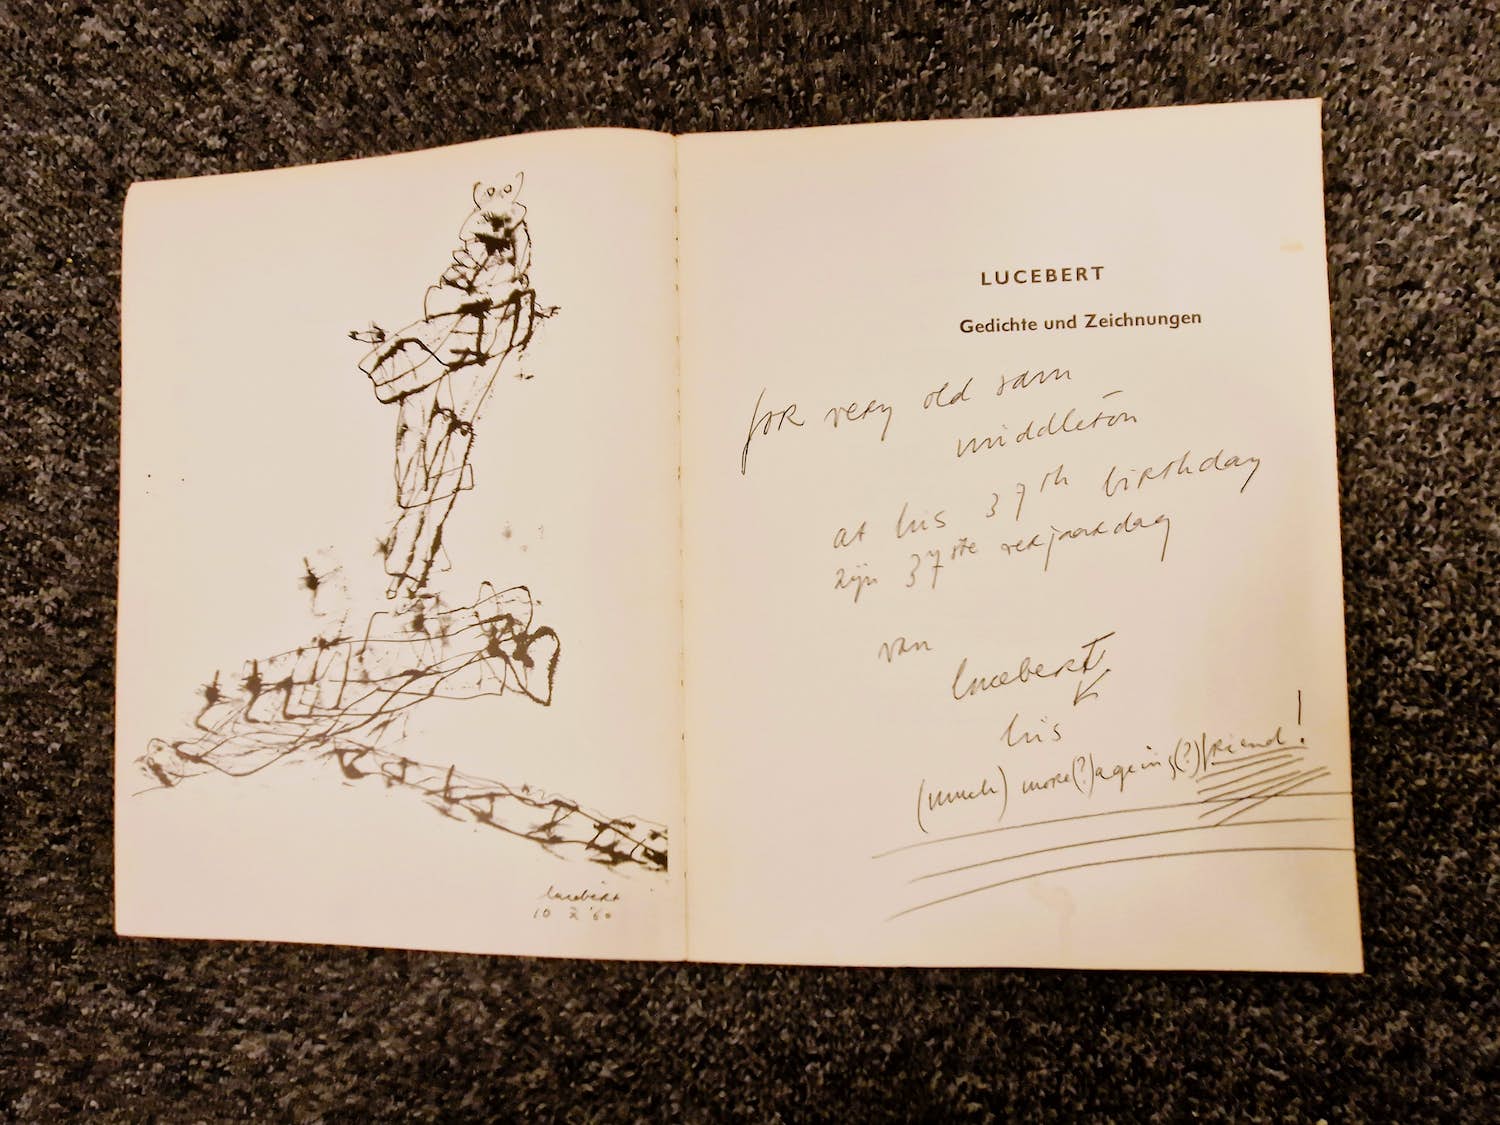 lucebert
10 2 '60
LUCEBERT
Gedichte und Zeichnungen
for very old sam
middleton
at his 37th birthday
zijn 37ste verjaardag
van
lucebert
his
(much) more(?) ageing(?) friend!